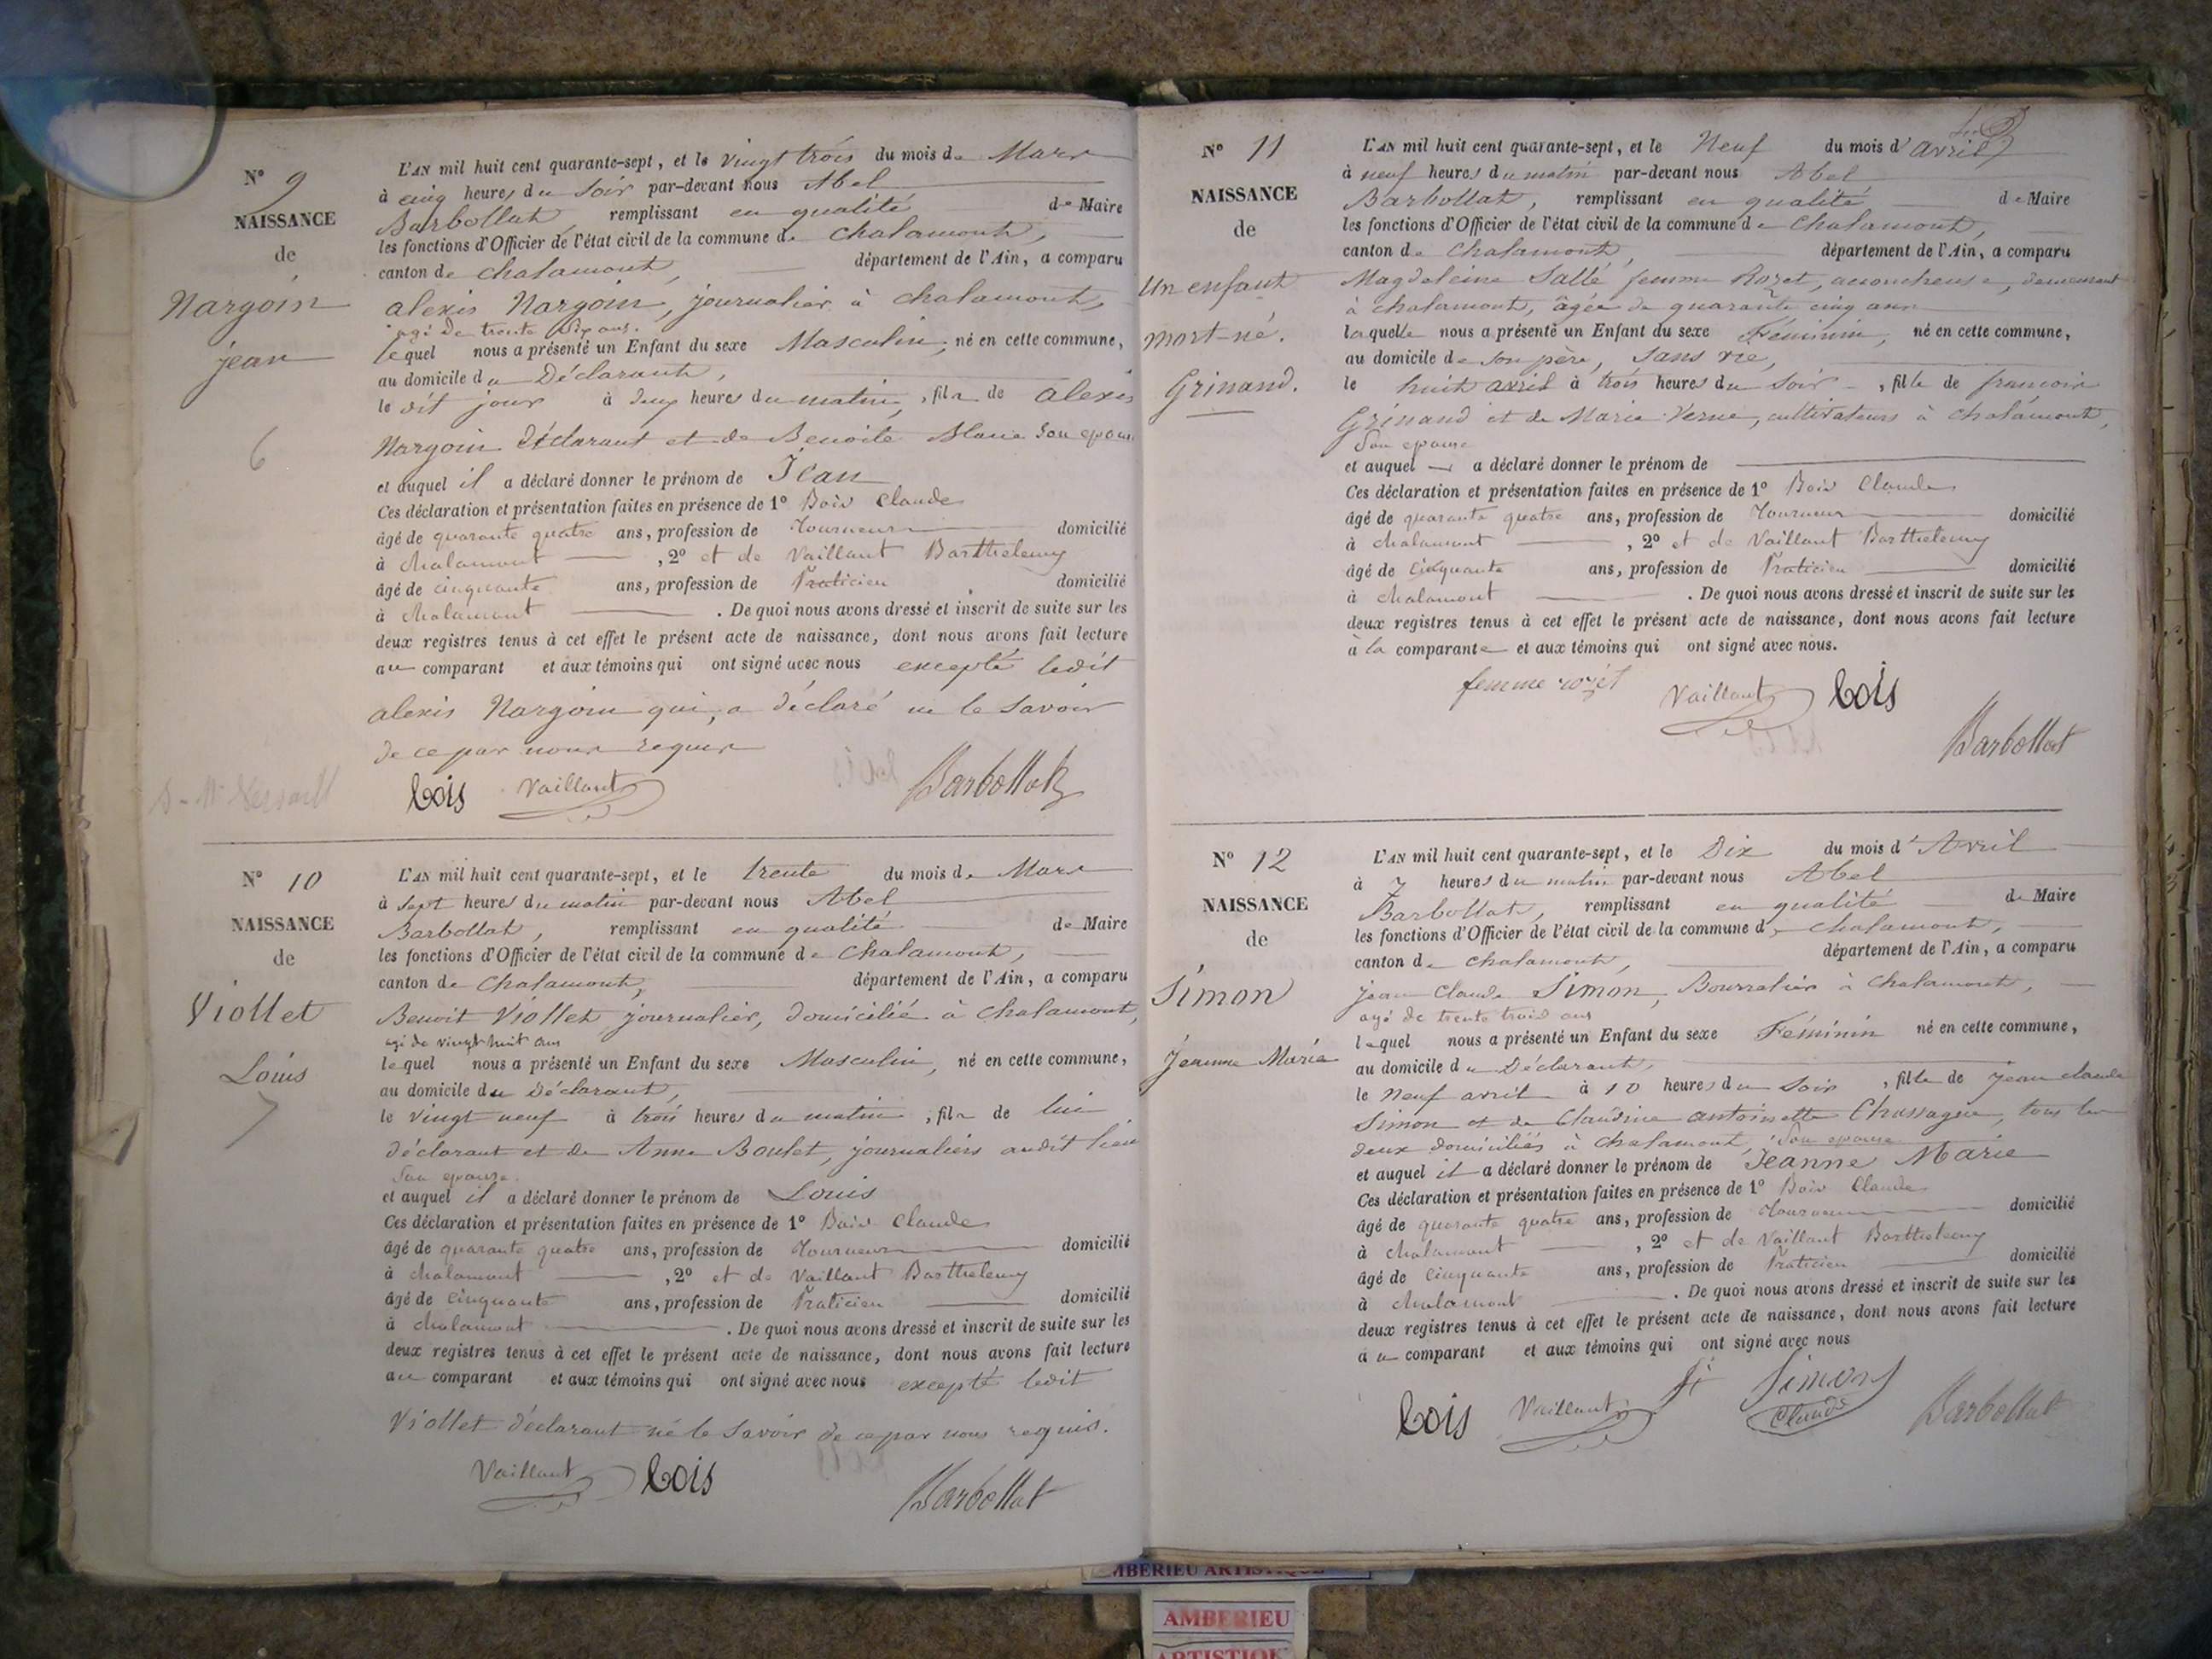 N° 9
NAISSANCE
de
Nargoin
jean
6
L'AN mil huit cent quarante-sept, et le vingt trois du mois de Mars
à cinq heures du soir par-devant nous Abel
Barbollat, remplissant en qualité de Maire
les fonctions d'Officier de l'état civil de la commune de Chalamont,
canton de Chalamont, département de l'Ain, a comparu
alexis Nargoin, journalier à chalamont,
agé de trente six ans.
lequel nous a présenté un Enfant du sexe Masculin, né en cette commune,
au domicile du Déclarant,
le dit jour à deux heures du matin, fils de alexis
Nargoin Déclarant et de Benoite Blanc son epouse
et auquel il a déclaré donner le prénom de Jean
Ces déclaration et présentation faites en présence de 1° Bois Claude
âgé de quarante quatre ans, profession de Tourneur domicilié
à chalamont, 2° et de Vaillant Barthelemy
âgé de cinquante ans, profession de Praticien domicilié
à chalamont. De quoi nous avons dressé et inscrit de suite sur les
deux registres tenus à cet effet le présent acte de naissance, dont nous avons fait lecture
au comparant et aux témoins qui ont signé avec nous excepté ledit
alexis Nargoin qui, a déclaré ne le savoir
de ce par nous requis
bois Vaillant Barbollat
N° 10
NAISSANCE
de
Viollet
Louis
7
L'AN mil huit cent quarante-sept, et le trente du mois de Mars
à sept heures du matin par-devant nous Abel
Barbollat, remplissant en qualité de Maire
les fonctions d'Officier de l'état civil de la commune de Chalamont,
canton de Chalamont, département de l'Ain, a comparu
Benoit Viollet journalier, domicilié à Chalamont,
agé de vingt huit ans
lequel nous a présenté un Enfant du sexe Masculin, né en cette commune,
au domicile du Déclarant,
le vingt neuf à trois heures du matin, fils de lui
déclarant et de Anne Boulet, journaliers audit lieu
son epouse.
et auquel il a déclaré donner le prénom de Louis
Ces déclaration et présentation faites en présence de 1° Bois Claude
âgé de quarante quatre ans, profession de Tourneur domicilié
à chalamont, 2° et de Vaillant Barthelemy
âgé de cinquante ans, profession de Praticien domicilié
à chalamont. De quoi nous avons dressé et inscrit de suite sur les
deux registres tenus à cet effet le présent acte de naissance, dont nous avons fait lecture
au comparant et aux témoins qui ont signé avec nous excepté ledit
Viollet déclarant ne le savoir de ce par nous requis.
Vaillant bois Barbollat
N° 11
NAISSANCE
de
Un enfant
mort-né.
Grinand.
L'AN mil huit cent quarante-sept, et le Neuf du mois d'avril
à neuf heures du matin par-devant nous Abel
Barbollat, remplissant en qualité de Maire
les fonctions d'Officier de l'état civil de la commune de Chalamont,
canton de Chalamont, département de l'Ain, a comparu
Magdeleine Sallé femme Rozet, accoucheuse, demeurant
à chalamont, âgée de quarante cinq ans
laquelle nous a présenté un Enfant du sexe Féminin, né en cette commune,
au domicile de son père, sans vie,
le huit avril à trois heures du soir, fille de francois
Grinand et de Marie Verne, cultivateurs à chalamont,
Son epouse
et auquel a déclaré donner le prénom de
Ces déclaration et présentation faites en présence de 1° Bois Claude
âgé de quarante quatre ans, profession de Tourneur domicilié
à chalamont, 2° et de Vaillant Barthelemy
âgé de cinquante ans, profession de Praticien domicilié
à chalamont. De quoi nous avons dressé et inscrit de suite sur les
deux registres tenus à cet effet le présent acte de naissance, dont nous avons fait lecture
à la comparante et aux témoins qui ont signé avec nous.
femme rozét Vaillant bois
Barbollat
N° 12
NAISSANCE
de
Simon
Jeanne Marie
L'AN mil huit cent quarante-sept, et le Dix du mois d'Avril
à 7 heures du matin par-devant nous Abel
Barbollat, remplissant en qualité de Maire
les fonctions d'Officier de l'état civil de la commune de Chalamont,
canton de Chalamont, département de l'Ain, a comparu
jean Claude Simon, Bourrelier à Chalamont,
agé de trente trois ans
lequel nous a présenté un Enfant du sexe Féminin né en cette commune,
au domicile du Déclarant,
le Neuf avril à 10 heures du soir, fille de jean claude
Simon et de Claudine antoinette Chassagne, tous les
deux domiciliés à Chalamont, son epouse
et auquel il a déclaré donner le prénom de Jeanne Marie
Ces déclaration et présentation faites en présence de 1° Bois Claude
âgé de quarante quatre ans, profession de Tourneur domicilié
à chalamont, 2° et de Vaillant Barthelemy
âgé de cinquante ans, profession de Praticien domicilié
à chalamont. De quoi nous avons dressé et inscrit de suite sur les
deux registres tenus à cet effet le présent acte de naissance, dont nous avons fait lecture
au comparant et aux témoins qui ont signé avec nous
bois Vaillant Si Simon Claude Barbollat
AMBERIEU ARTISTIQUE
AMBERIEU
ARTISTIQUE